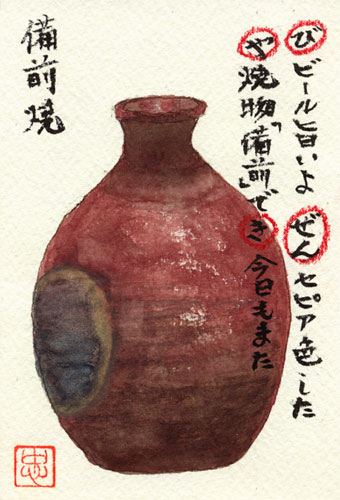 びビール旨いよ ぜんセピア色した
や焼物「備前」でき今日もまた
備前焼
忠